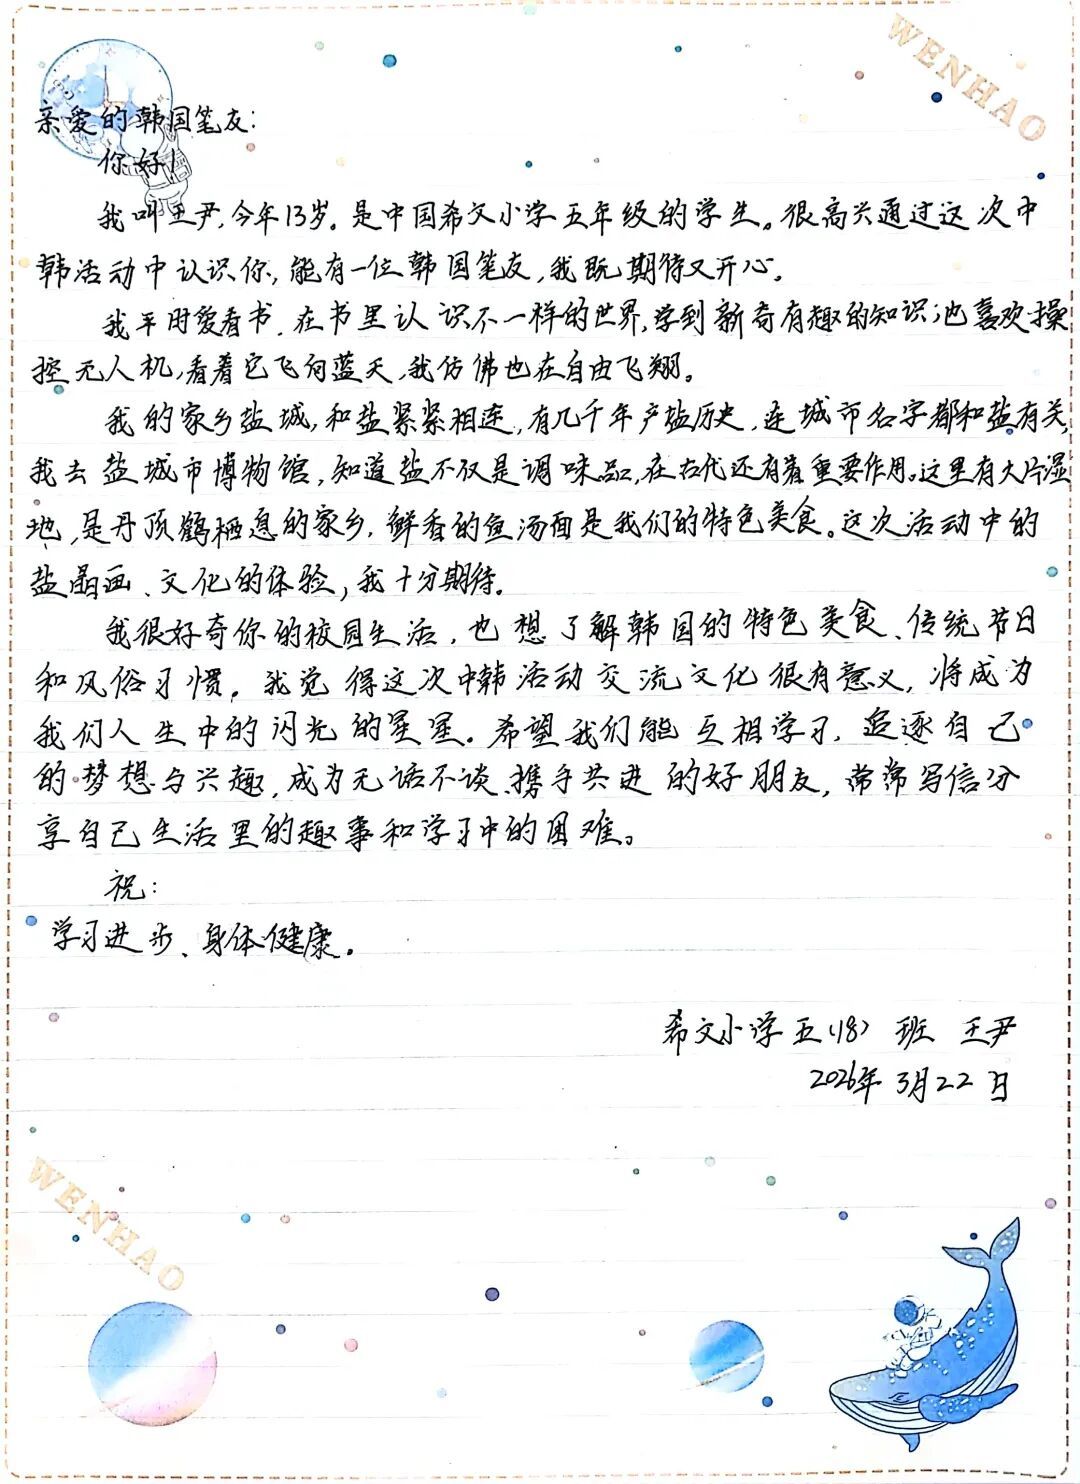 WENHAO
亲爱的韩国笔友：
你好！
我叫王尹，今年13岁。是中国希文小学五年级的学生。很高兴通过这次中
韩活动中认识你，能有一位韩国笔友，我既期待又开心。
我平时爱看书，在书里认识不一样的世界，学到新奇有趣的知识；也喜欢操
控无人机，看着它飞向蓝天，我仿佛也在自由飞翔。
我的家乡盐城，和盐紧紧相连，有几千年产盐历史，连城市名字都和盐有关，
我去盐城市博物馆，知道盐不仅是调味品，在古代还有着重要作用。这里有大片湿
地，是丹顶鹤栖息的家乡，鲜香的鱼汤面是我们的特色美食。这次活动中的
盐晶画、文化的体验，我十分期待。
我很好奇你的校园生活，也想了解韩国的特色美食、传统节日
和风俗习惯。我觉得这次中韩活动交流文化很有意义，将成为
我们人生中的闪光的星星。希望我们能互相学习，追逐自己
的梦想与兴趣，成为无话不谈、携手共进的好朋友，常常写信分
享自己生活里的趣事和学习中的困难。
祝：
学习进步、身体健康。
希文小学五（18）班 王尹
2026年3月22日
WENHAO